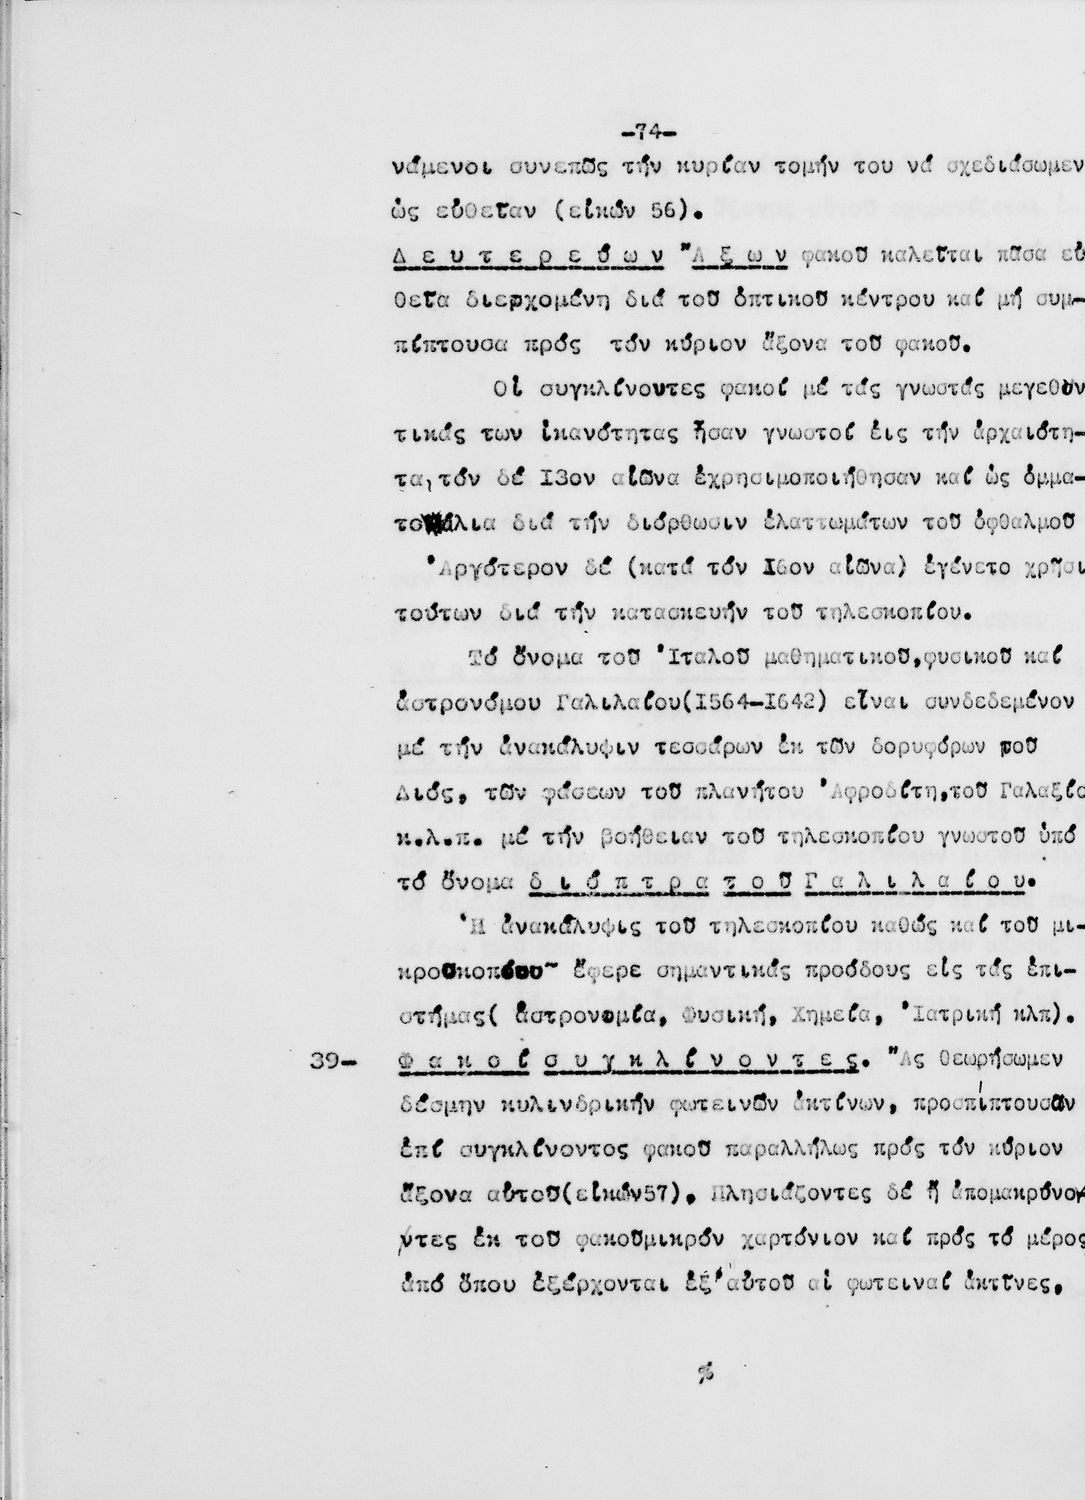 -74-
νάμενοι συνεπῶς τήν κυρίαν τομήν του νά σχεδιάσωμεν
ὡς εὐθεῖαν (εἰκών 56).
Δ ε υ τ ε ρ ε ύ ω ν "Α ξ ω ν φακοῦ καλεῖται πᾶσα εὐ
θεῖα διερχομένη διά τοῦ ὀπτικοῦ κέντρου καί μή συμ-
πίπτουσα πρός τόν κύριον ἄξονα τοῦ φακοῦ.
Οἱ συγκλίνοντες φακοί μέ τάς γνωστάς μεγεθυν
τικάς των ἱκανότητας ἦσαν γνωστοί ἐις τήν ἀρχαιότη-
τα,τόν δέ I3ον αἰῶνα ἐχρησιμοποιήθησαν καί ὡς ὀμμα-
τοΰάλια διά τήν διόρθωσιν ἐλαττωμάτων τοῦ ὀφθαλμοῦ
'Αργότερον δέ (κατά τόν I6ον αἰῶνα) ἐγένετο χρῆσι
τούτων διά τήν κατασκευήν τοῦ τηλεσκοπίου.
Τό ὄνομα τοῦ 'Ιταλοῦ μαθηματικοῦ,φυσικοῦ καί
ἀστρονόμου Γαλιλαίου(I564-I642) εἶναι συνδεδεμένον
μέ τήν ἀνακάλυψιν τεσσάρων ἐκ τῶν δορυφόρων τοῦ
Διός, τῶν φάσεων τοῦ πλανήτου 'Αφροδίτη,τοῦ Γαλαξίο
κ.λ.π. μέ τήν βοήθειαν τοῦ τηλεσκοπίου γνωστοῦ ὑπό
τό ὄνομα δ ι ό π τ ρ α τ ο ῦ Γ α λ ι λ α ί ο υ.
'Η ἀνακάλυψις τοῦ τηλεσκοπίου καθώς καί τοῦ μι-
κροσκοπίου ἔφερε σημαντικάς προόδους εἰς τάς ἐπι-
στήμας( ἀστρονομία, Φυσική, Χημεία, 'Ιατρική κλπ).
39- Φ α κ ο ί σ υ γ κ λ ί ν ο ν τ ε ς. "Ας θεωρήσωμεν
δέσμην κυλινδρικήν φωτεινῶν ἀκτίνων, προσπίπτουσαν
ἐπί συγκλίνοντος φακοῦ παραλλήλως πρός τόν κύριον
ἄξονα αὐτοῦ(εἰκών57). Πλησιάζοντες δέ ἤ ἀπομακρύνο
ντες ἐκ τοῦ φακοῦμικρόν χαρτόνιον καί πρός τό μέρος
ἀπό ὅπου ἐξέρχονται ἐξ'αὐτοῦ αἱ φωτειναί ἀκτῖνες,